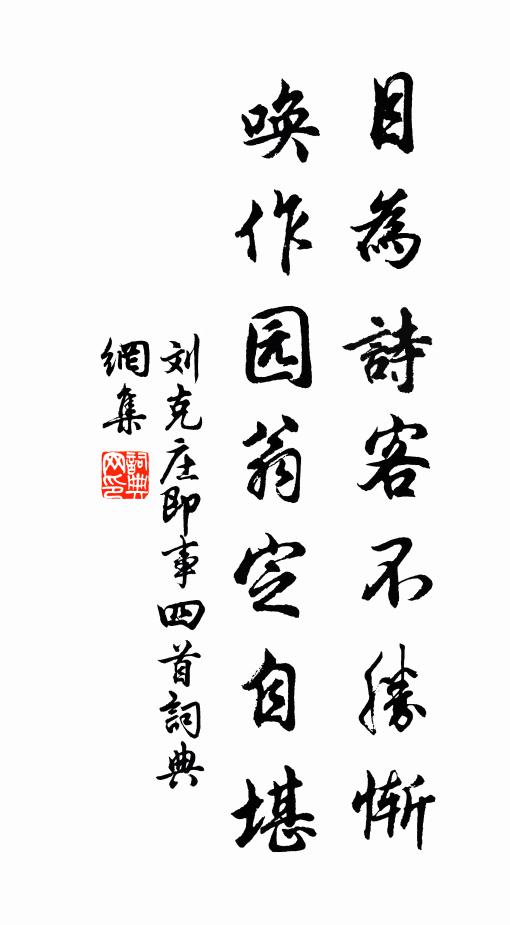 目為詩客不勝慚
唤作园翁定自堪
刘克庄即事四首詞典
網集
詞典网印